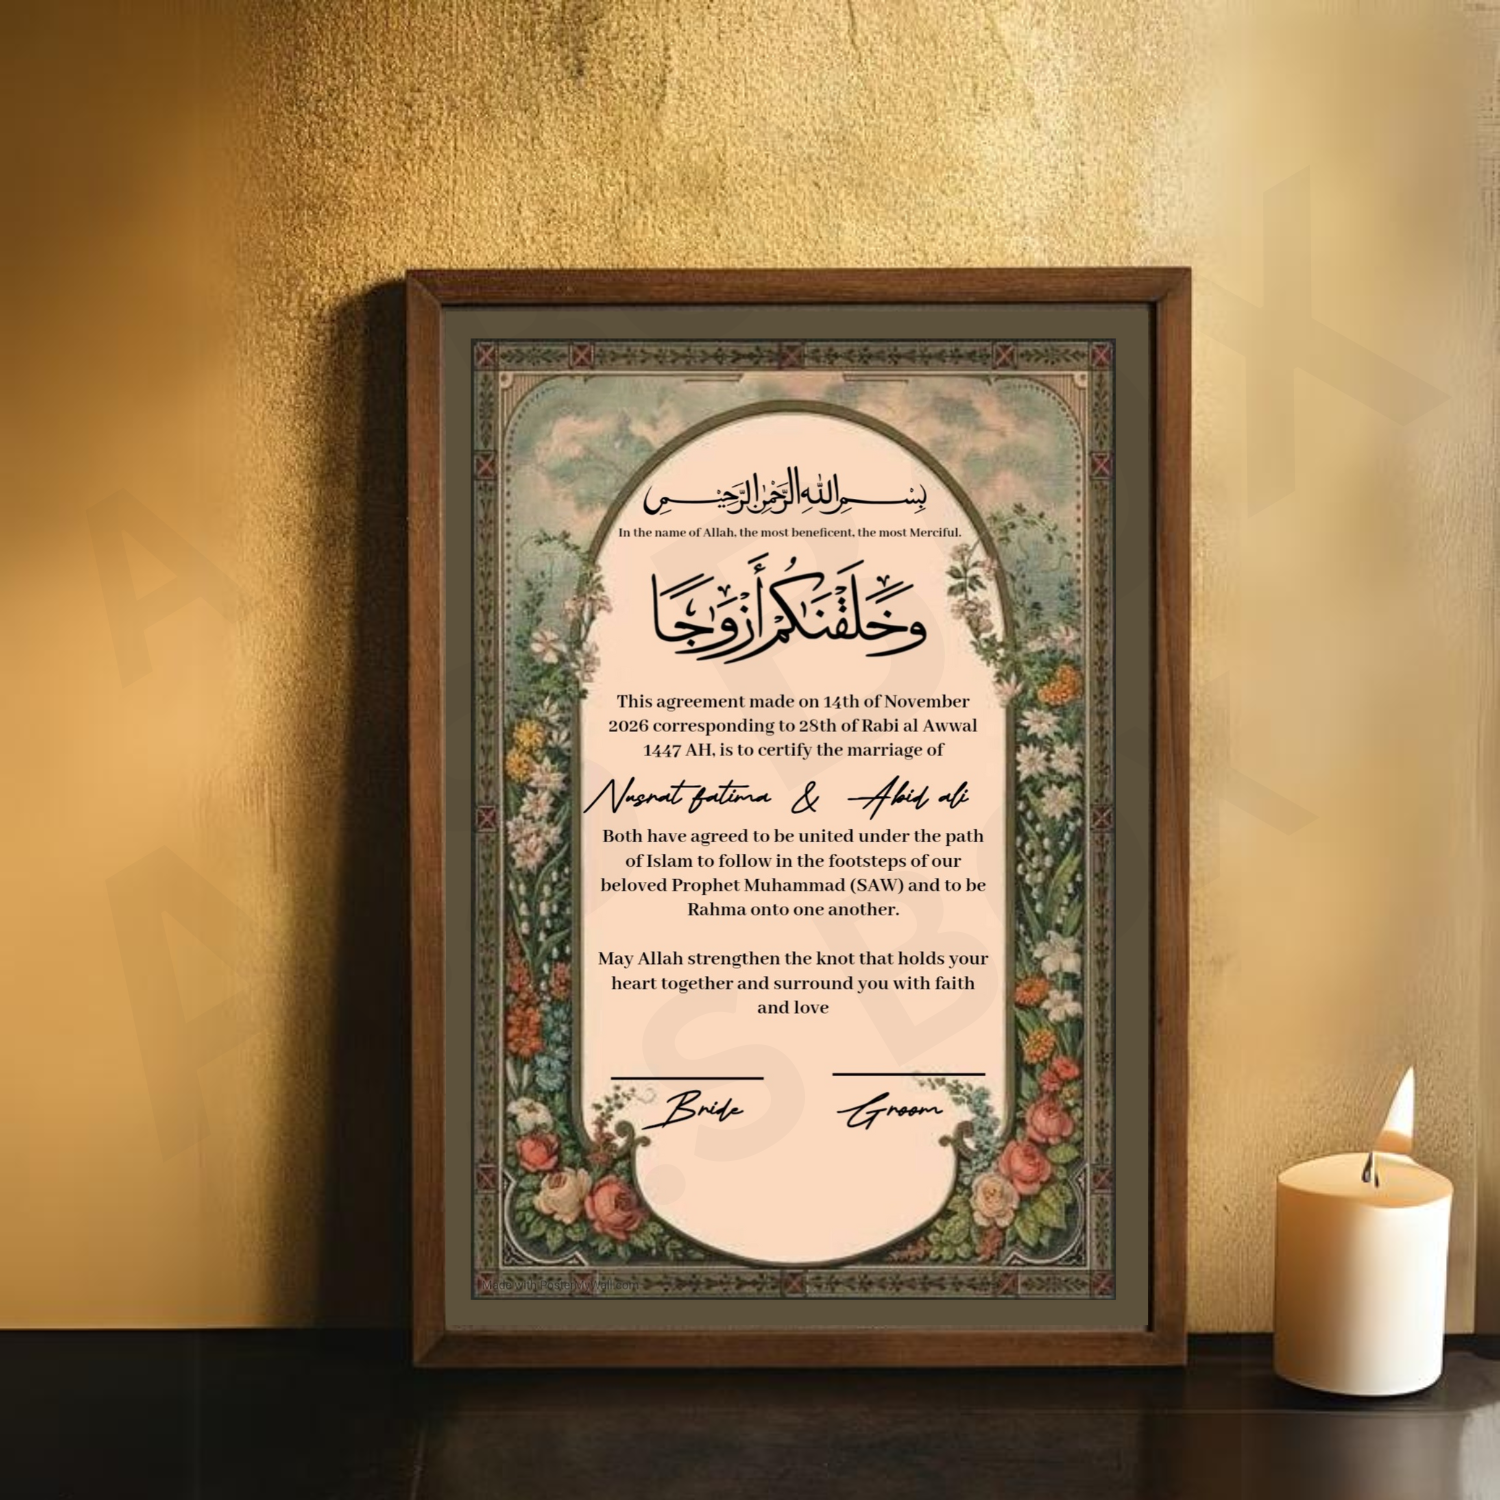 بِسْمِ اللهِ الرَّحْمٰنِ الرَّحِيْمِ
In the name of Allah, the most beneficent, the most Merciful.
وَخَلَقْنَٰكُمْ أَزْوَٰجًا
This agreement made on 14th of November
2026 corresponding to 28th of Rabi al Awwal
1447 AH, is to certify the marriage of
Nusrat fatima & Abid ali
Both have agreed to be united under the path
of Islam to follow in the footsteps of our
beloved Prophet Muhammad (SAW) and to be
Rahma onto one another.
May Allah strengthen the knot that holds your
heart together and surround you with faith
and love
Bride Groom
Made with PosterMyWall.com